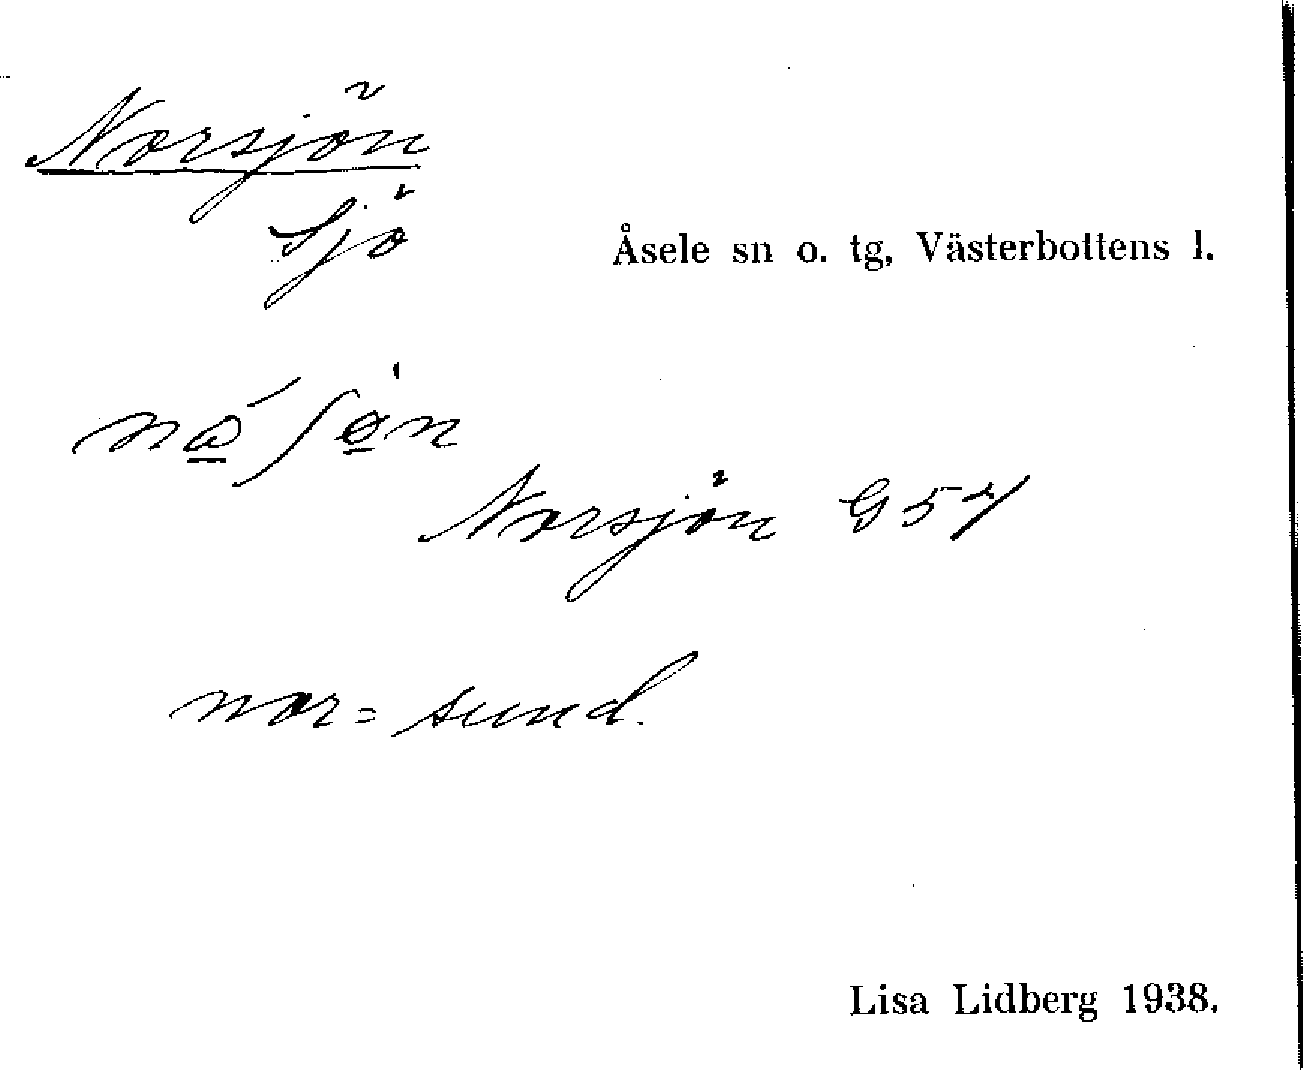 Norsjön
Sjö
Åsele sn o. tg, Västerbottens l.
Norsjön G57
nor = sund.
Lisa Lidberg 1938.